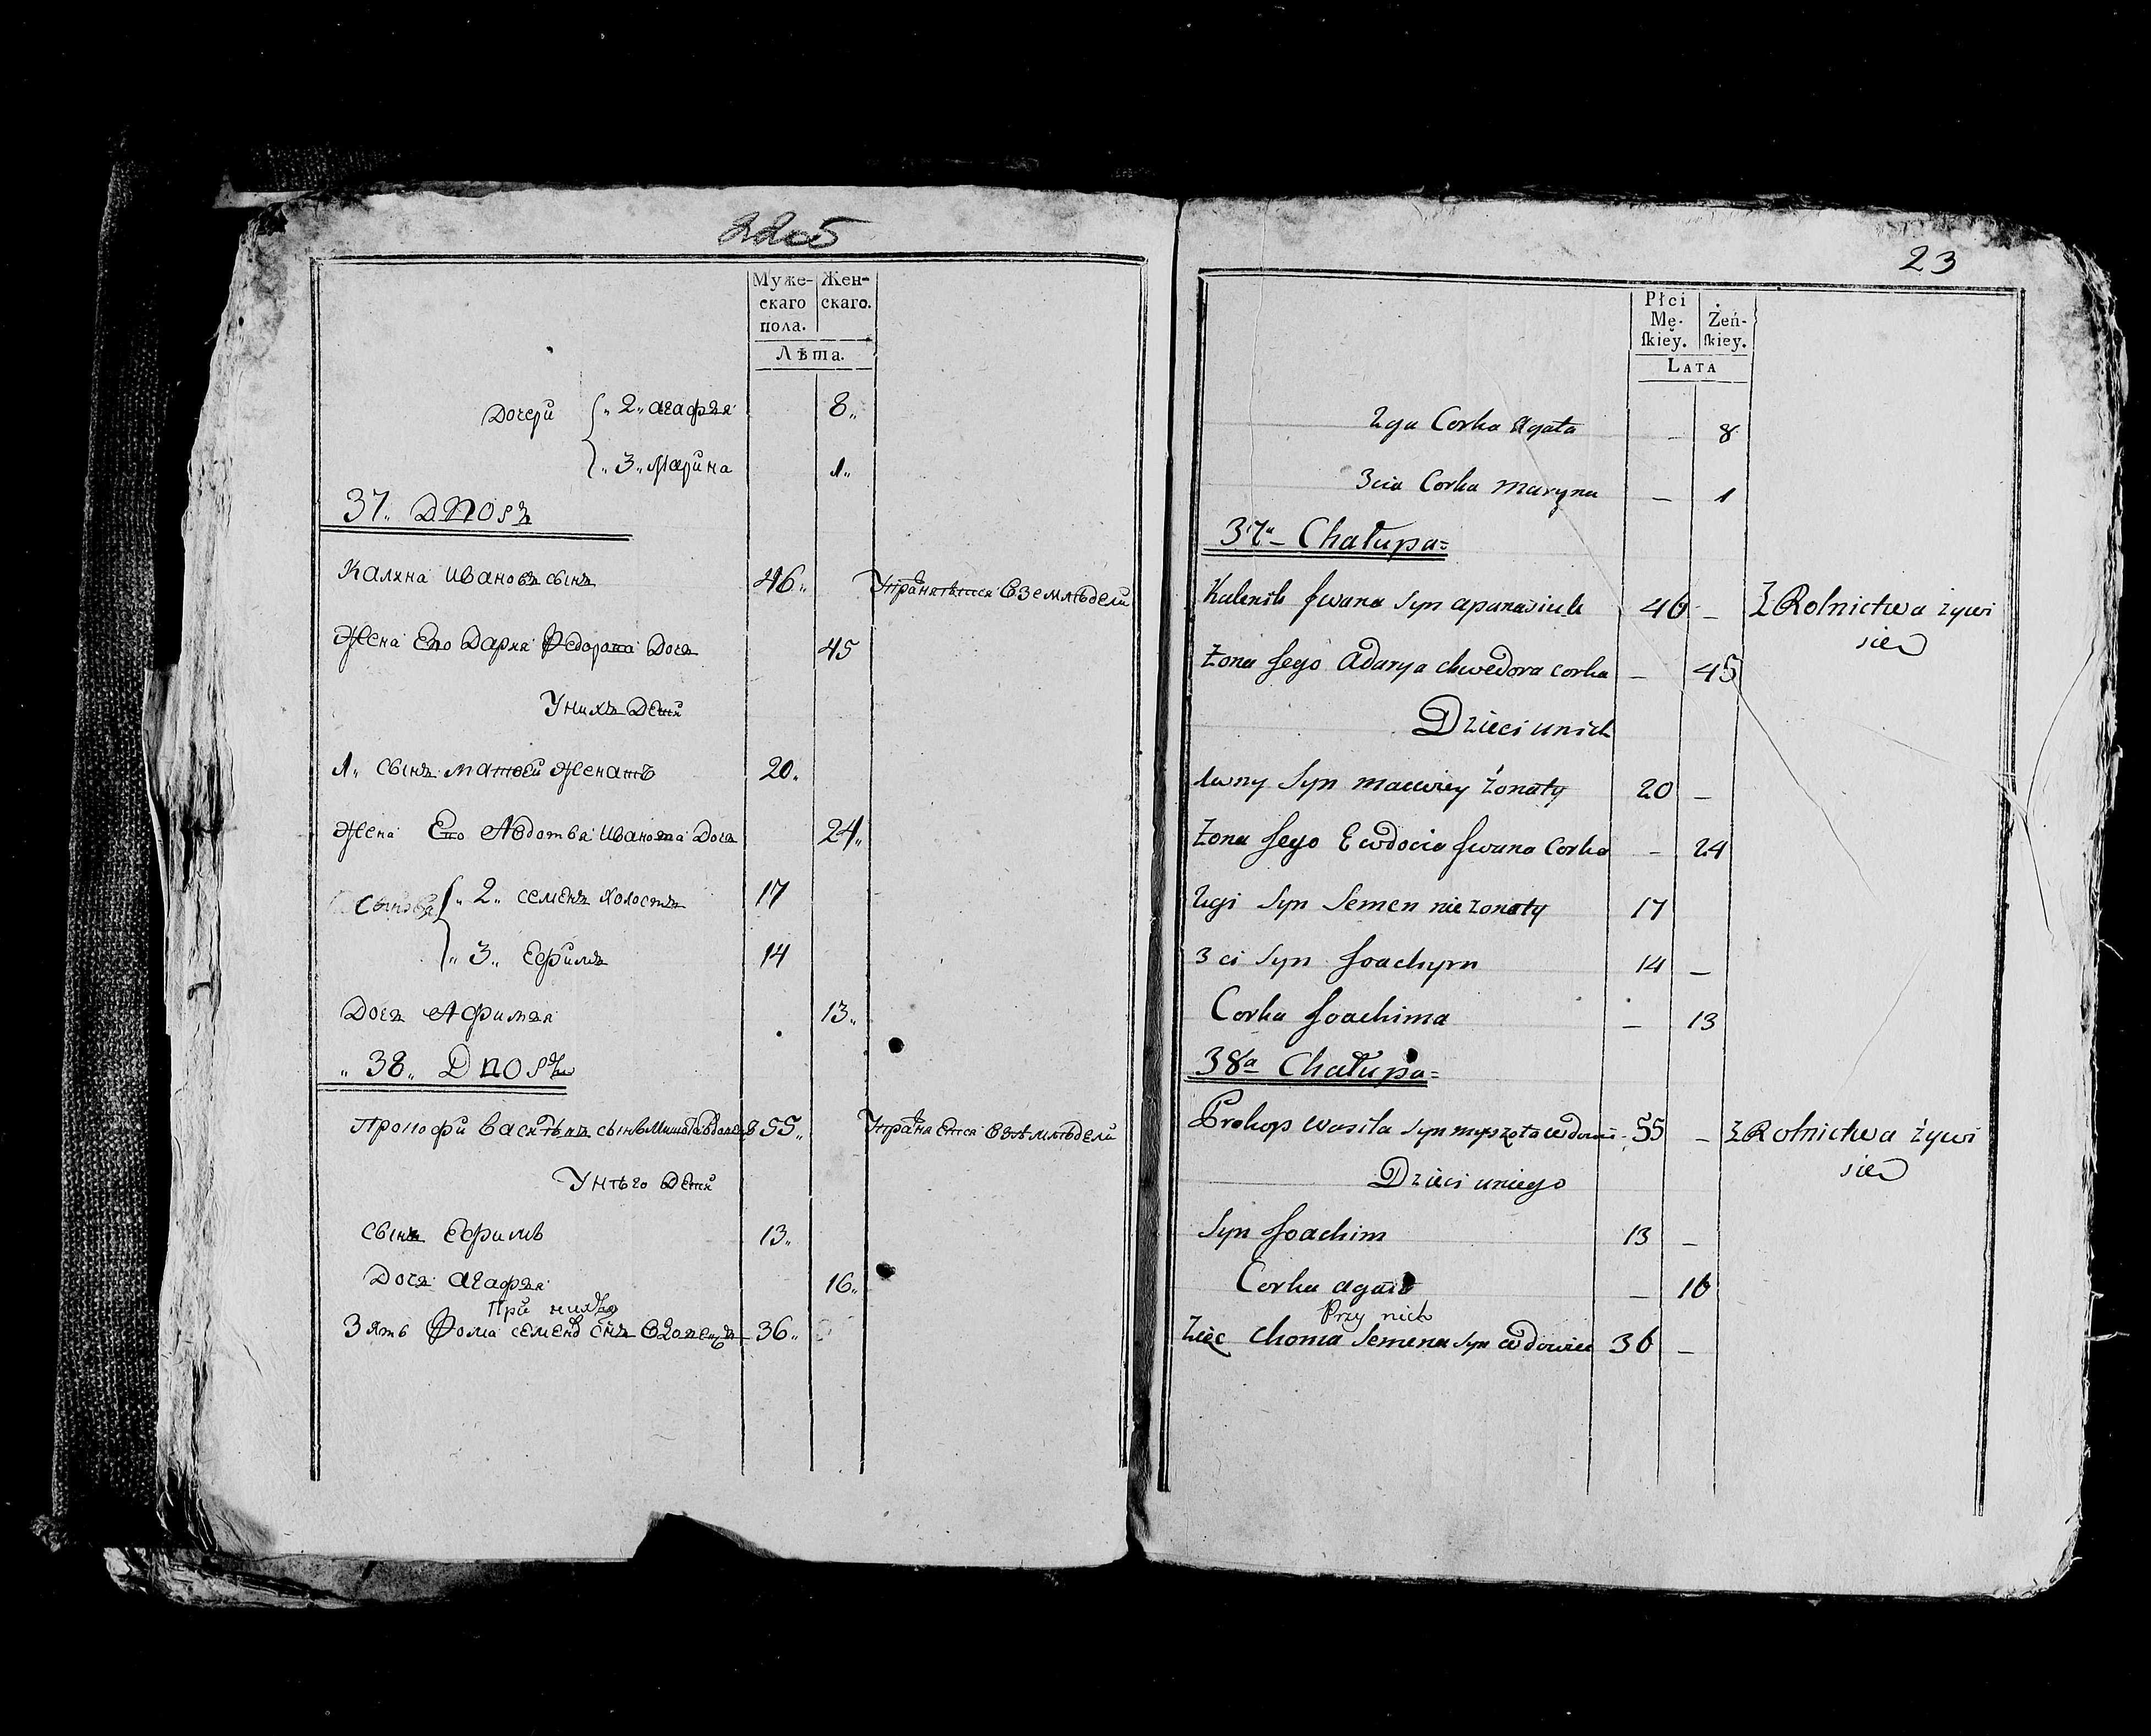 22об
Муже-скаго пола. Жен-скаго.
Лѣта.
Дочери „2„ агафья 8„
„3„ Марина 1„
37„ Дворъ
Калина Ивановъ сынъ 46„ Упражняется в земледели
Жена Его Дарья Федорова Дочь 45
У нихъ Дети
1„ сынъ матвей женатъ 20„
Жена Его Авдотья Иванова Дочь 24„
Сыновья „2„ семенъ холостъ 17
„3„ Ефимъ 14
Дочь Афимья 13„
„38„ Дворъ
Прокофи Васильевъ сынъ 55„ Упражняется в земледели
У него Дети
сынъ Ефимъ 13„
Дочь агафья 16„
При нихъ
Зять Фома семеновъ сынъ вдовецъ 36„
23
Płci Mę-skiey. Żeń-skiey.
LATA
2ga Corka Agata – 8
3cia Corka Maryna – 1
37a Chałupa=
Kalenik Jwana Syn apanasiuk 46 – Z Rolnictwa żywi
sie
Żona Jego Adarya Chwedora Corka – 45
Dzieci unich
1wny Syn Macwiey żonaty 20 –
Żona Jego Ewdocia Jwana Corka – 24
2gi Syn Semen nie żonaty 17
3ci Syn Joachym 14 –
Corka Joachima – 13
38a Chałupa=
Prokop Wasila Syn myszota wdowiec 55 – Z Rolnictwa żywi
sie
Dzieci uniego
Syn Joachim 13 –
Corka agata – 16
Przy nich
Zięc Choma Semena Syn wdowiec 36 –